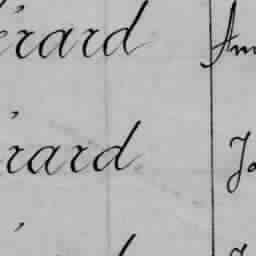 érard Am
rard Jo